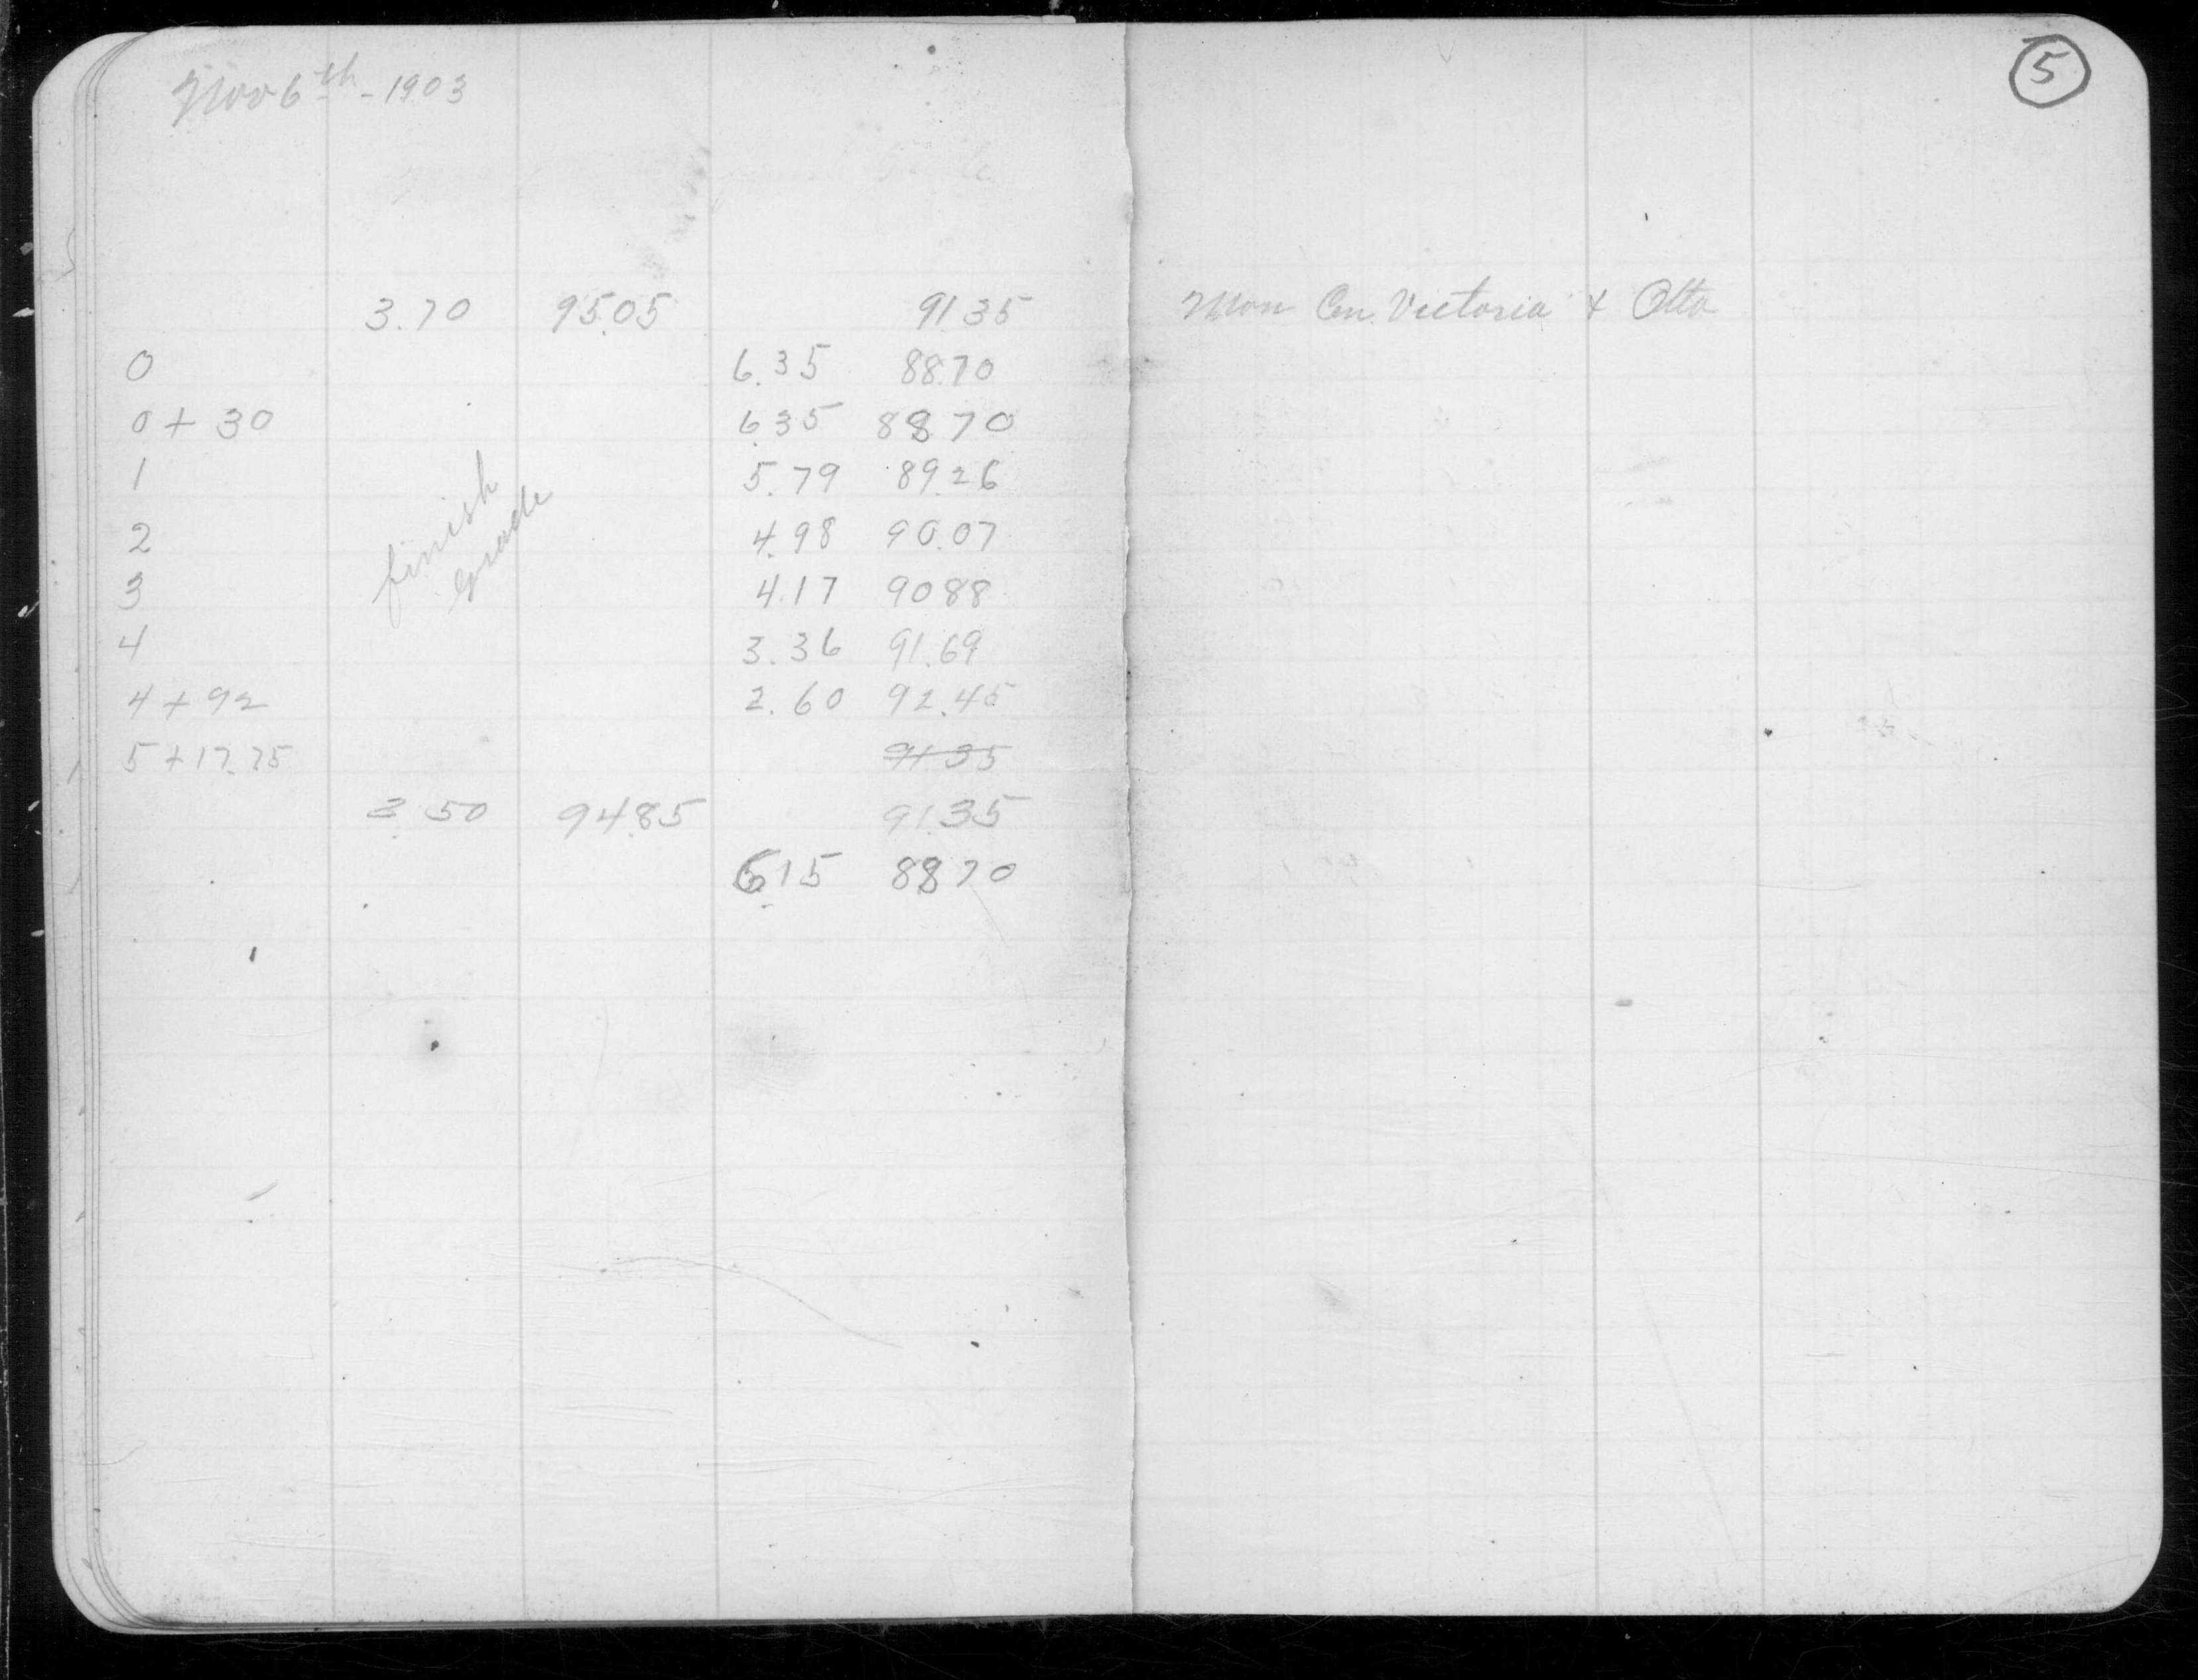 Nov 6th - 1903
5
3.70 95.05 91 35 Mon Cen. Victoria & Otto
0 6.35 88.70
0 + 30 6.35 88 70
1 5.79 89.26
2 4.98 90.07
3 4.17 90 88
4 3.36 91.69
4 + 92 2.60 92.45
5 + 17.75 91 35
finish
grade
3.50 94.85 91.35
6.15 88 70